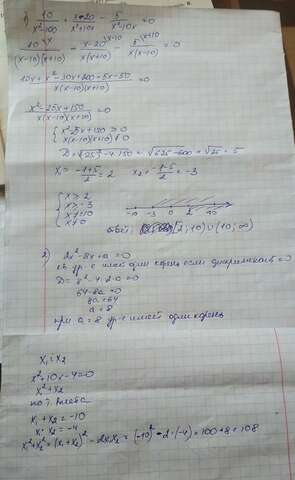 1) 10/(x²-100) + (x-20)/(x²+10x) - 5/(x²-10x) = 0
10/((x-10)(x+10)) + (x-20)/(x(x+10)) - 5/(x(x-10)) = 0
(10x + x² - 30x + 200 - 5x - 50)/(x(x-10)(x+10)) = 0
(x² - 25x + 150)/(x(x-10)(x+10)) = 0
{ x² - 25x + 150 ≥ 0
x(x-10)(x+10) ≠ 0
D = √25² - 4·150 = √625 - 600 = √25 = 5
x₁ = (-1+5)/2 = 2 x₂ = (-1-5)/2 = -3
{ x > 2
x > -3
x ≠ 10
x ≠ 0
-10 -3 0 2 10
Ответ: (2; 10) ∪ (10; ∞)
2) 2x² - 8x + a = 0
кв. ур-е имеет один корень если дискриминант = 0
D = 8² - 4·2·a = 0
64 - 8a = 0
8a = 64
a = 8
при a = 8 ур-е имеет один корень
x₁; x₂
x² + 10x - 4 = 0
x₁² + x₂²
по т. Виета
x₁ + x₂ = -10
x₁ · x₂ = -4
x₁² + x₂² = (x₁ + x₂)² - 2x₁x₂ = (-10)² - 2·(-4) = 100 + 8 = 108